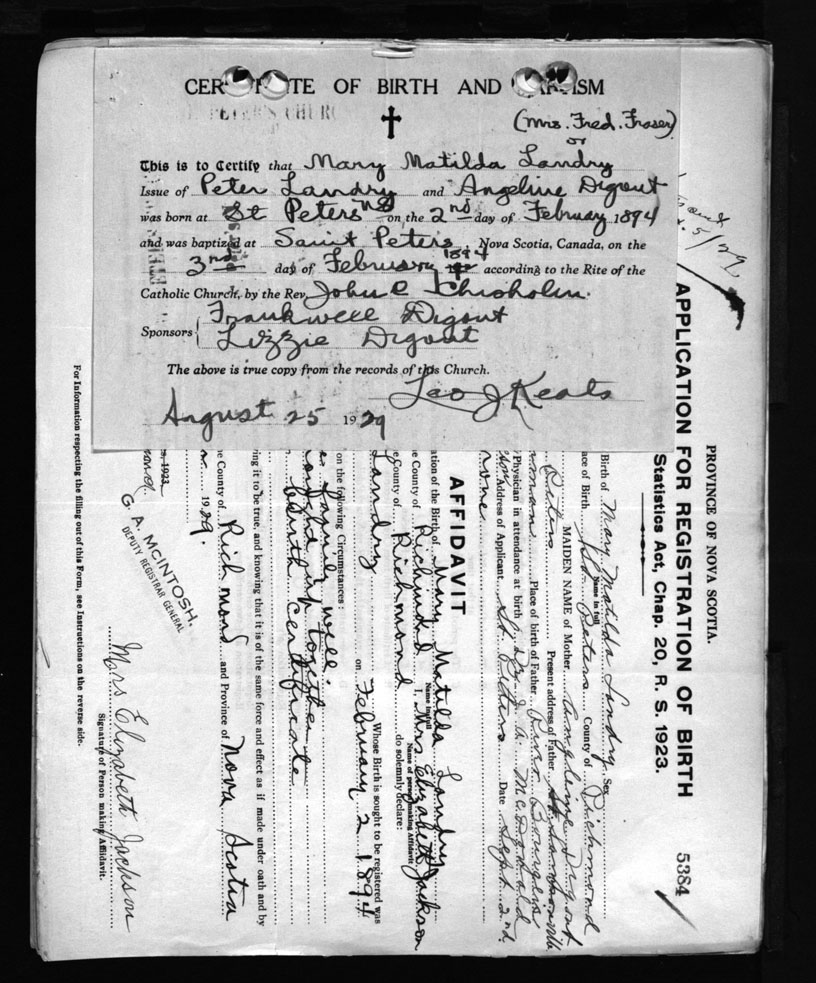 CERTIFICATE OF BIRTH AND BAPTISM
PETER'S CHURC
(Mrs. Fred. Fraser)
or
This is to Certify that Mary Matilda Landry
Issue of Peter Landry and Angeline Digout
was born at St Peters NS on the 2nd day of February 1894
and was baptized at Saint Peters, Nova Scotia, Canada, on the
3rd day of February 1894 according to the Rite of the
Catholic Church, by the Rev. John C Chisholm.
Sponsors { Frankwell Digout
Lizzie Digout
The above is true copy from the records of this Church.
Leo J Keats
August 25 1929
PROVINCE OF NOVA SCOTIA.
APPLICATION FOR REGISTRATION OF BIRTH
5384
Statistics Act, Chap. 20, R. S. 1923.
Birth of Mary Matilda Landry Sex
Name in full
ace of Birth St. Peters County of Richmond
MAIDEN NAME of Mother Angeline Digout
Peters Present address of Father
Place of birth of Father River Bourgeois
Physician in attendance at birth Dr. J. A. McDonald
Address of Applicant St. Peters Date Sept. 2nd.
none
AFFIDAVIT
ation of the Birth of Mary Matilda Landry
Name in full
e County of Richmond I, Mrs Elizabeth Jackson
Name of person making Affidavit
e County of Richmond do solemnly declare:
Whose Birth is sought to be registered was
Landry on February 2 1894
on the following Circumstances:
family well.
up together
birth certificate
ing it to be true, and knowing that it is of the same force and effect as if made under oath and by
e County of Richmond and Province of Nova Scotia
1929.
s, 1923
G. A. McINTOSH.
DEPUTY REGISTRAR GENERAL
Mrs Elizabeth Jackson
Signature of Person making Affidavit.
For Information respecting the filling out of this Form, see Instructions on the reverse side.